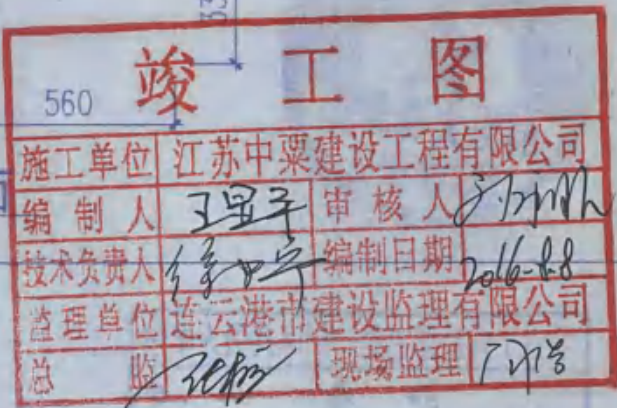 33
竣工图
560
施工单位 江苏中粟建设工程有限公司
编制人 审核人
技术负责人 编制日期 2016.8.8
监理单位 连云港市建设监理有限公司
总监 现场监理